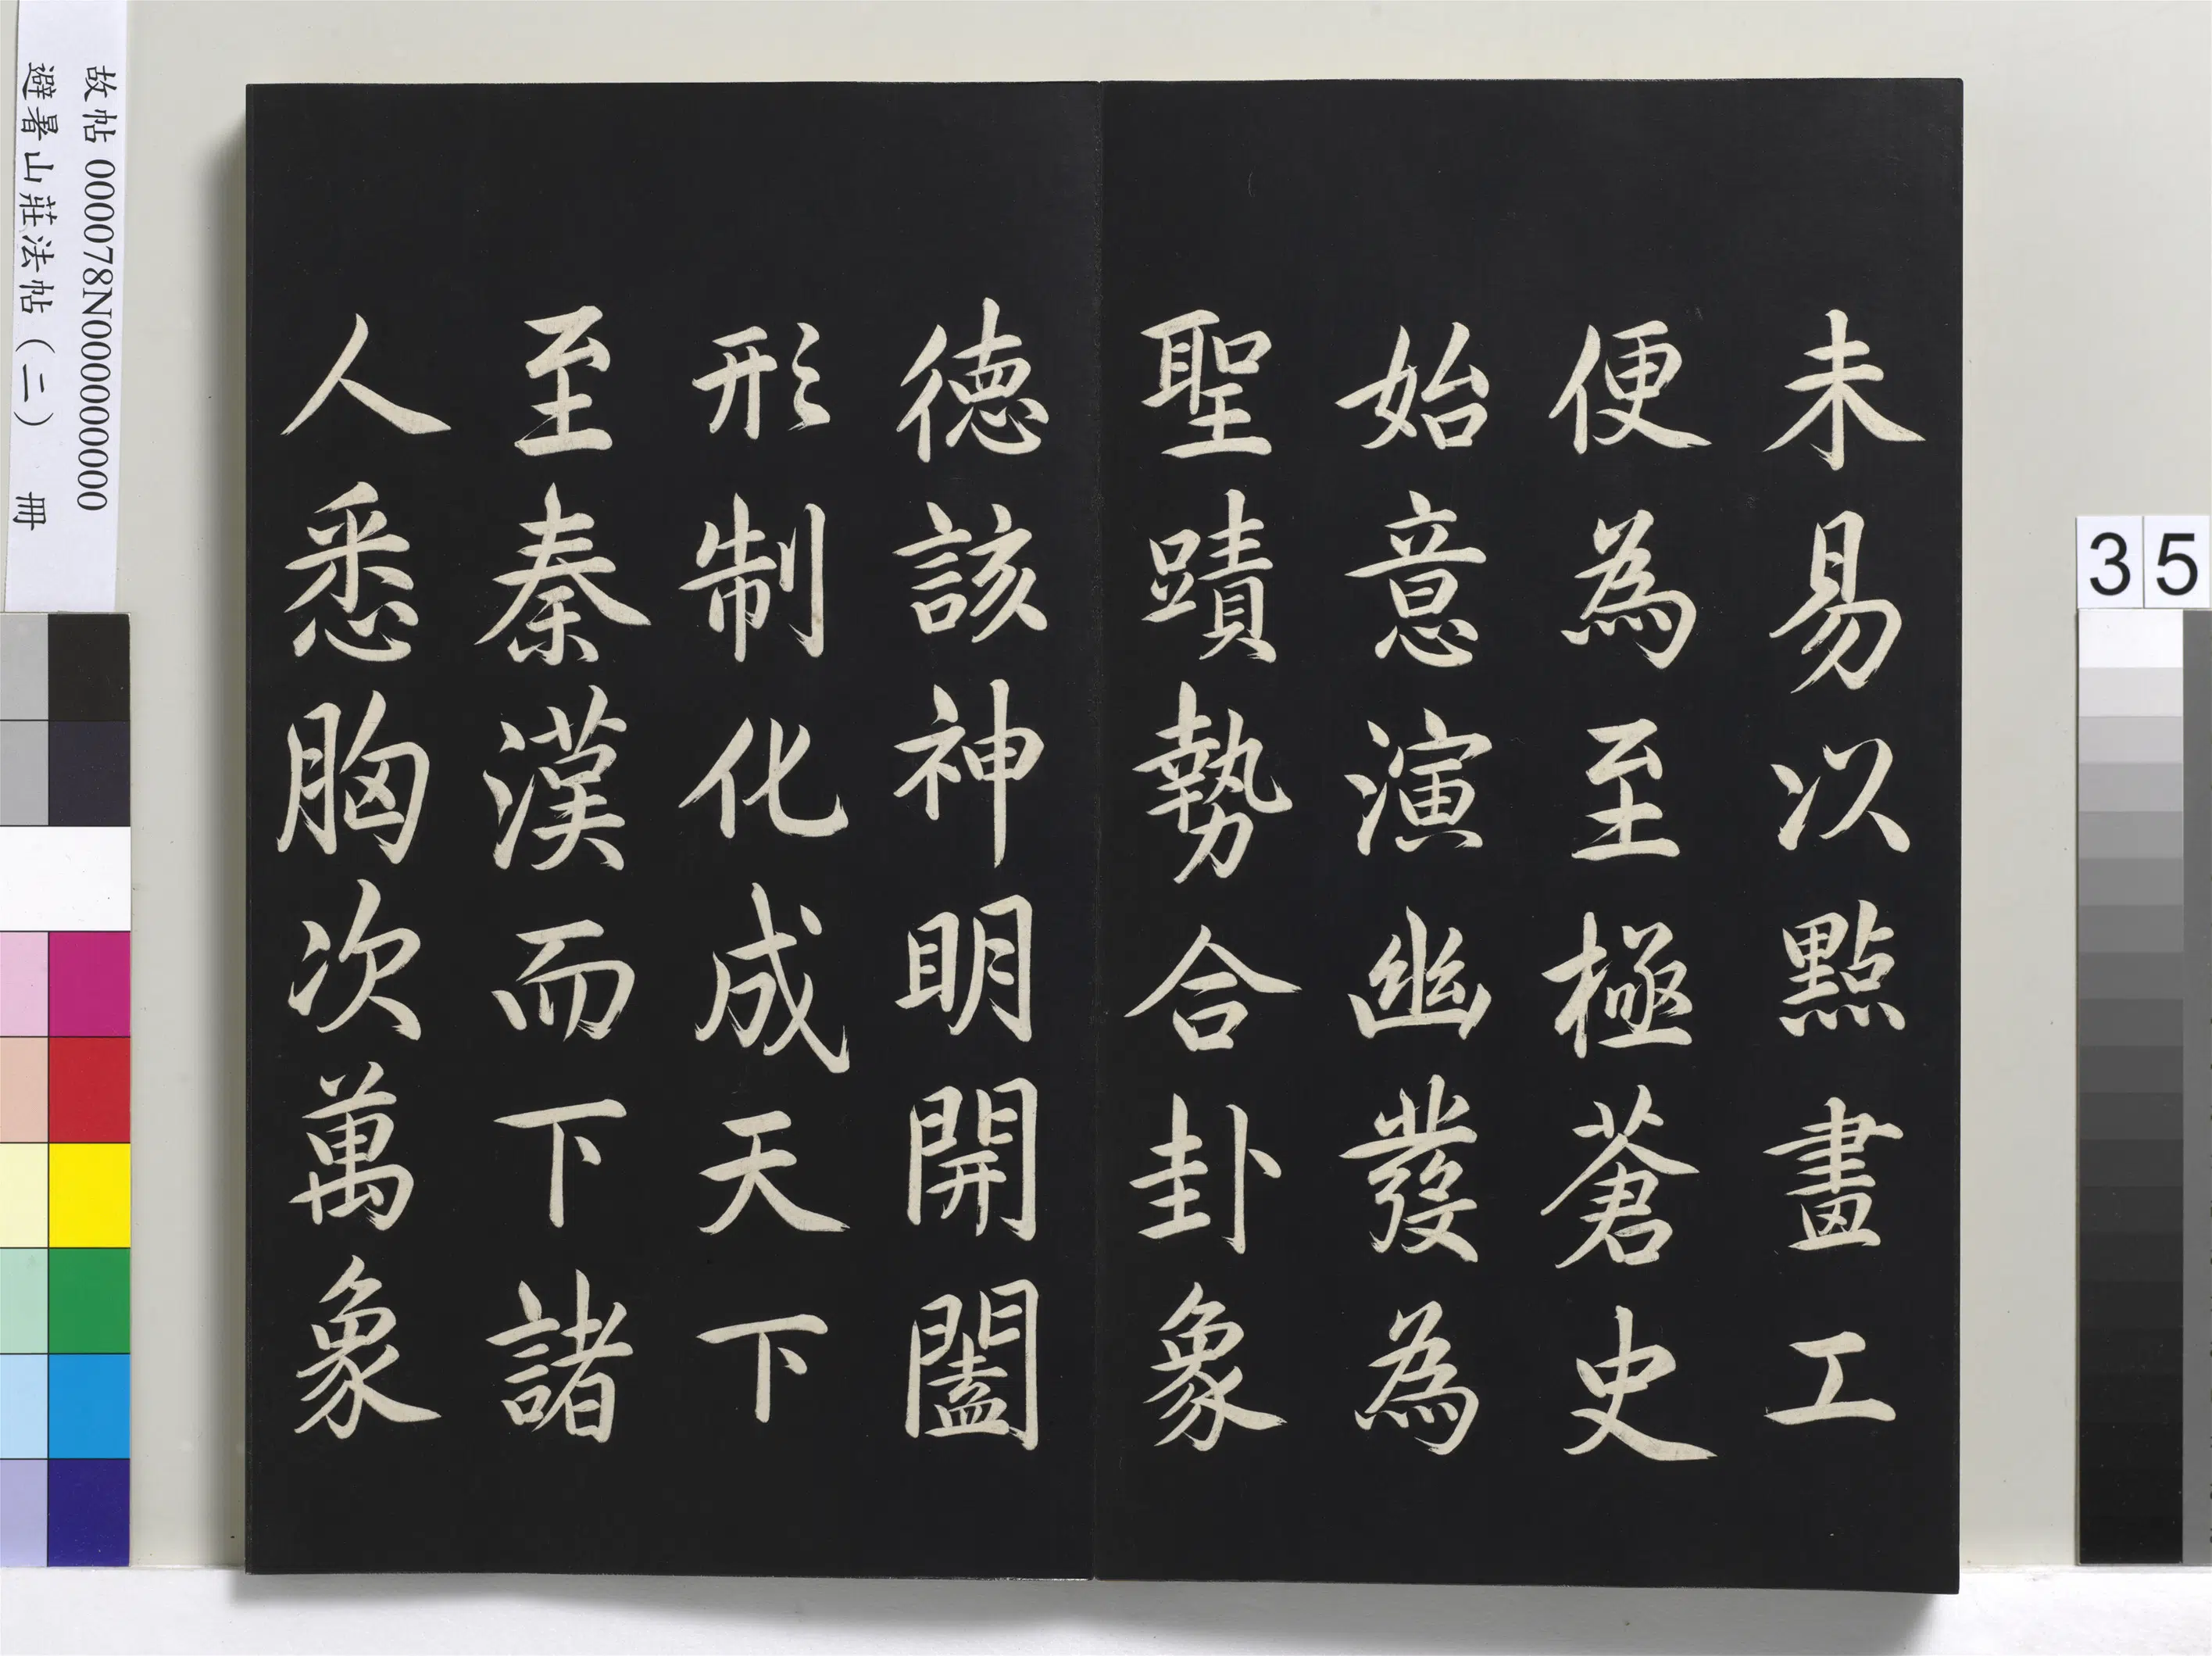 未易以點畫工
便為至極蒼史
始意演幽發為
聖蹟勢合卦象
德該神明開闔
形制化成天下
至秦漢而下諸
人悉胸次萬象
故帖 000078N000000000
避暑山莊法帖（二） 冊
35